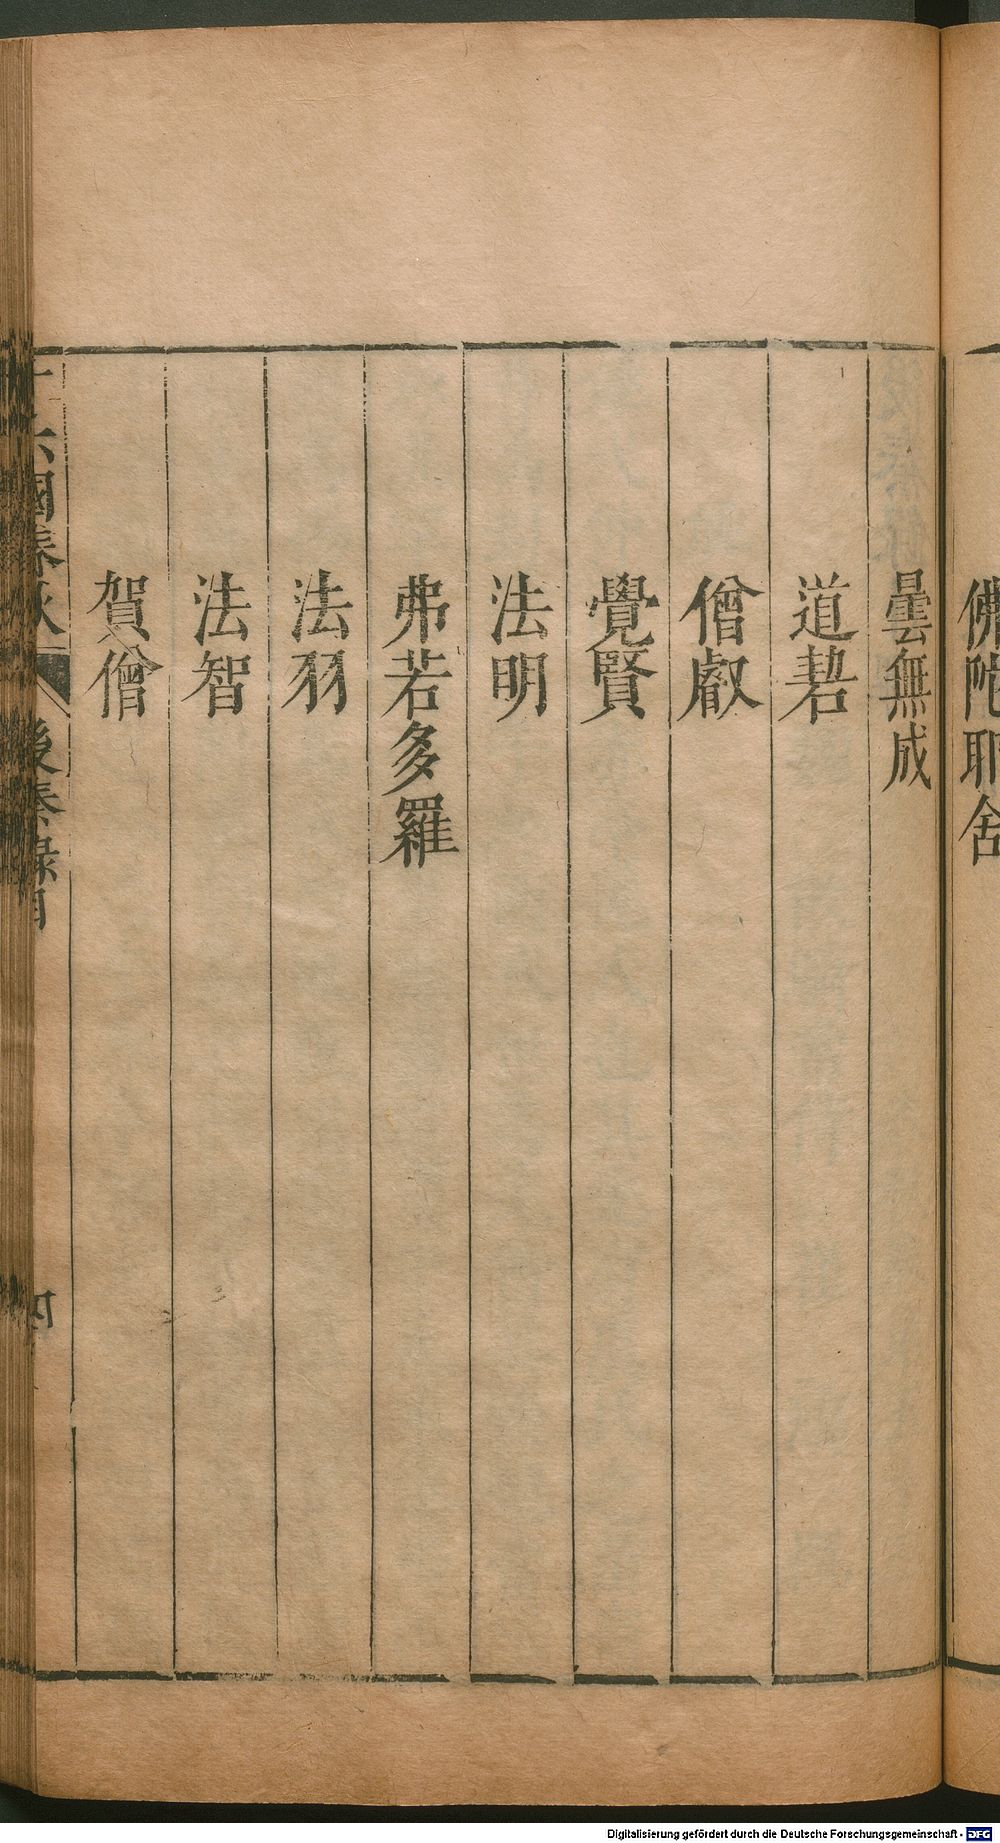 佛陀耶舍
曇無成
道䂮
僧叡
覺賢
法明
弗若多羅
法羽
法智
賀僧
十六國春秋 後秦錄目 四
Digitalisierung gefördert durch die Deutsche Forschungsgemeinschaft - DFG